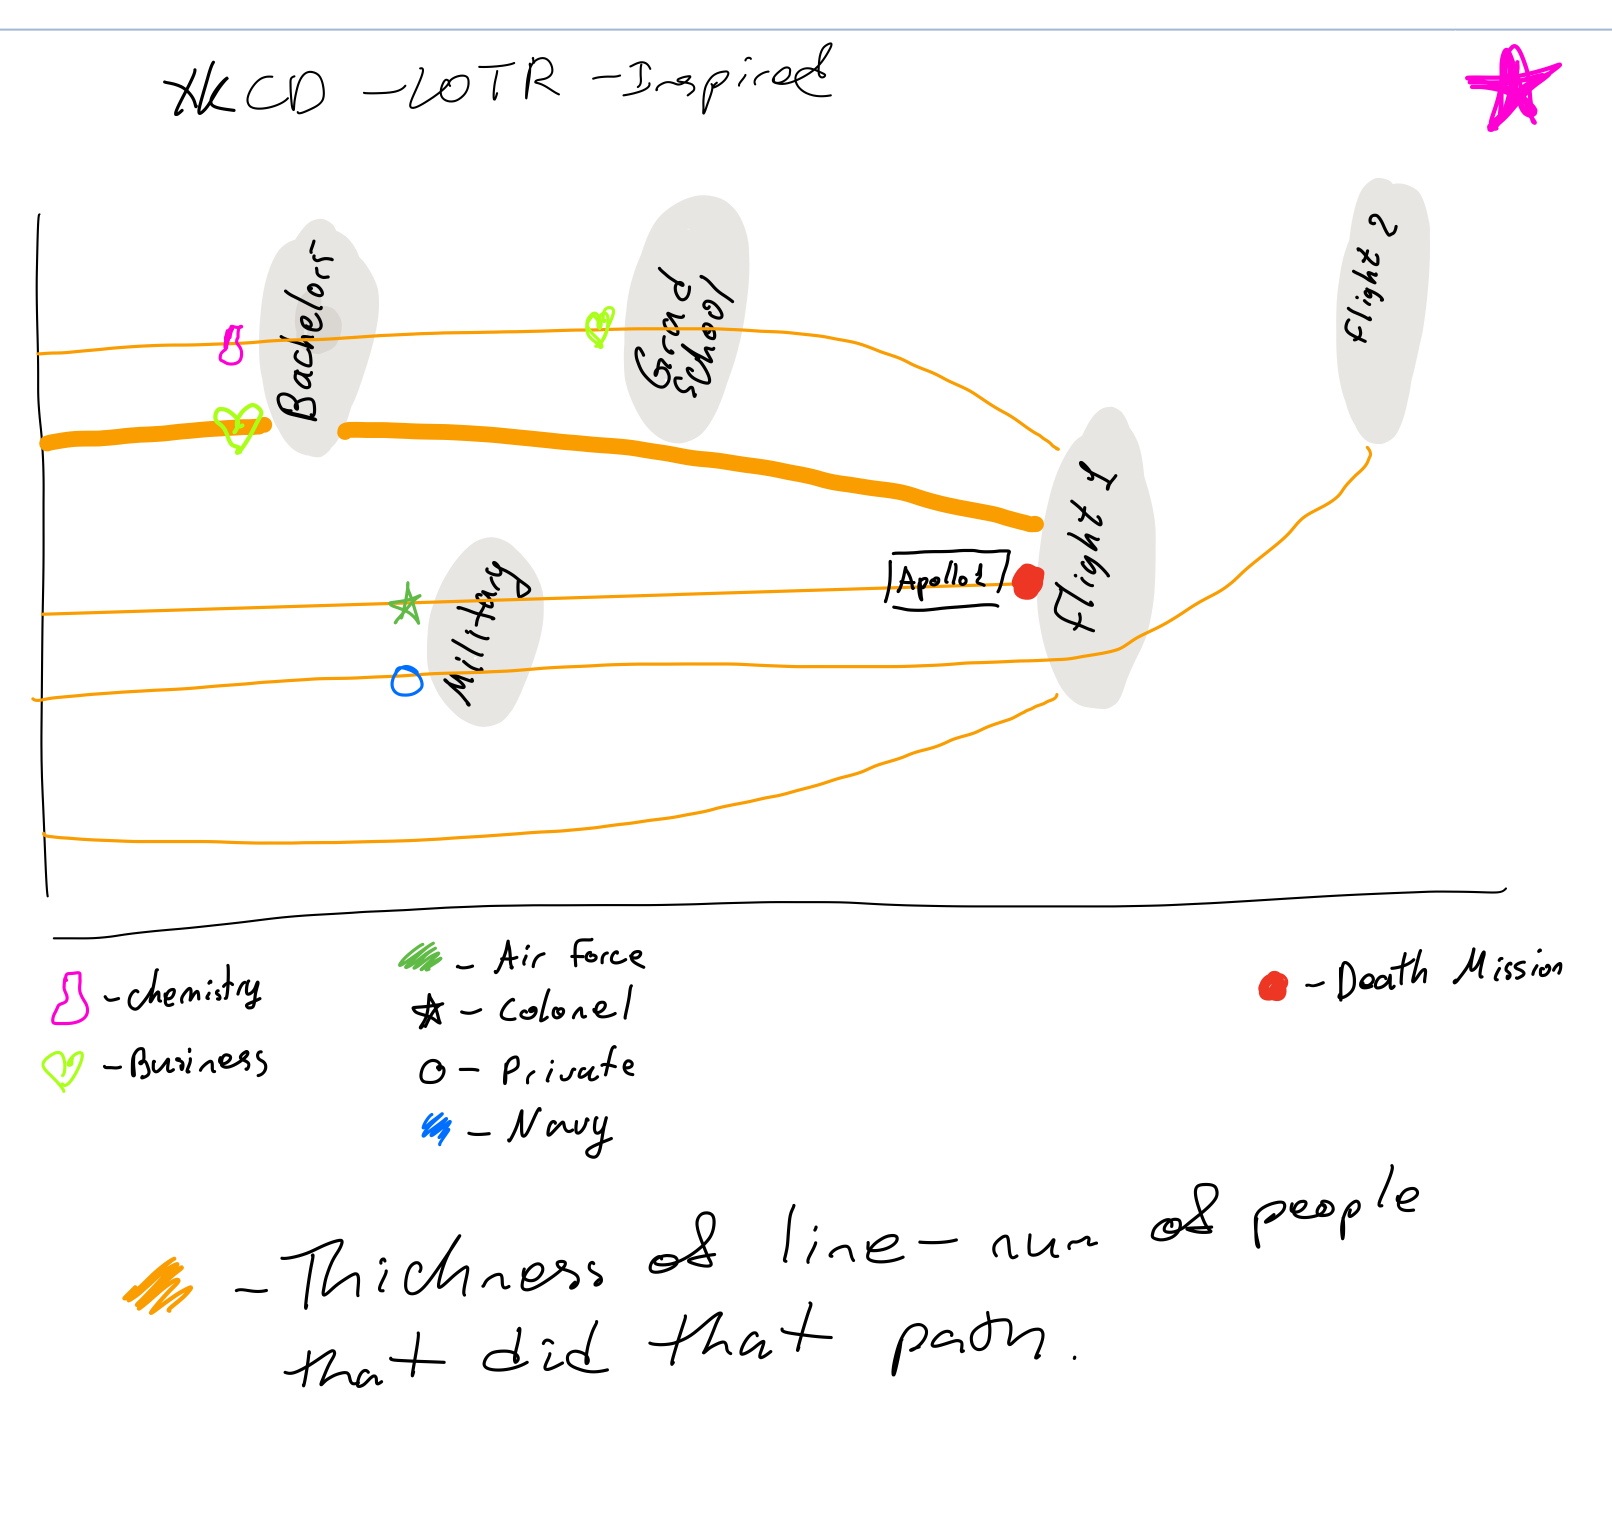 XKCD - LOTR - Inspired
Bachelors
Grad
School
Flight 2
Flight 1
Apollo 1
Military
- Chemistry
- Business
- Air Force
- Colonel
- Private
- Navy
- Death Mission
- Thickness of line - num of people
that did that path.